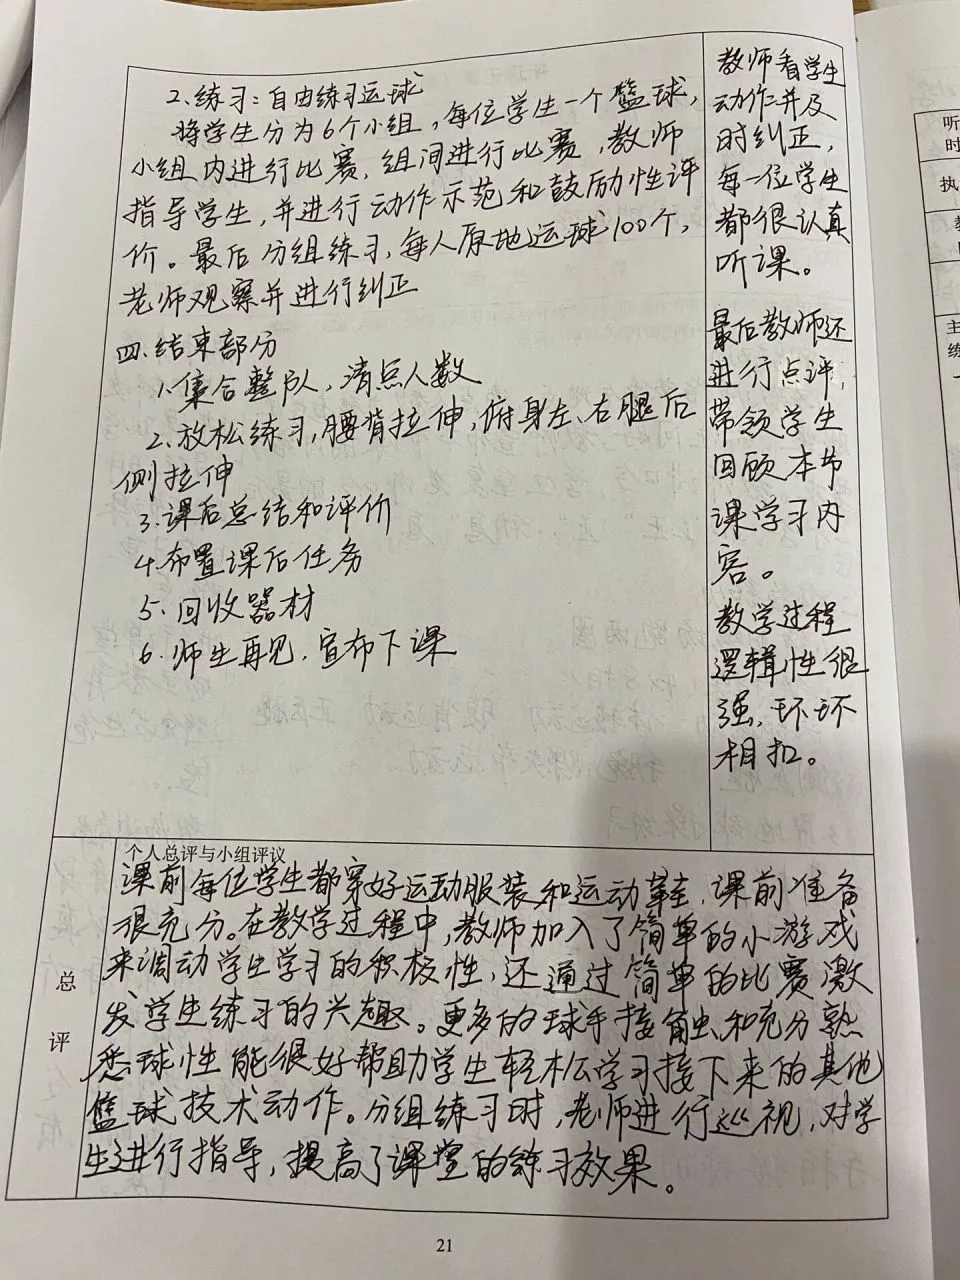 2、练习：自由练习运球
将学生分为6个小组，每位学生一个篮球，
小组内进行比赛，组间进行比赛，教师
指导学生，并进行动作示范和鼓励性评
价。最后分组练习，每人原地运球100个，
老师观察并进行纠正
四、结束部分
1、集合整队，清点人数
2、放松练习，腰背拉伸，俯身左、右腿后
侧拉伸
3、课后总结和评价
4、布置课后任务
5、回收器材
6、师生再见，宣布下课
教师看学生
动作并及
时纠正，
每一位学生
都很认真
听课。
最后教师还
进行点评，
带领学生
回顾本节
课学习内
容。
教学过程
逻辑性很
强，环环
相扣。
总
评
个人总评与小组评议
课前每位学生都穿好运动服装和运动鞋，课前准备
很充分。在教学过程中，教师加入了简单的小游戏
来调动学生学习的积极性，还通过简单的比赛激
发学生练习的兴趣。更多的球手接触和充分熟
悉球性能很好帮助学生轻松学习接下来的其他
篮球技术动作。分组练习时，老师进行巡视，对学
生进行指导，提高了课堂的练习效果。
21
听
时
执
主
练